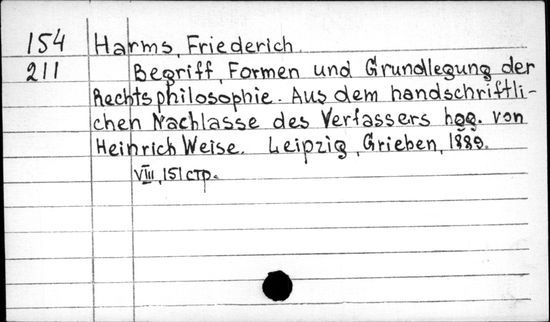 154 Harms, Friederich.
211 Begriff, Formen und Grundlegung der
Rechtsphilosophie. Aus dem handschriftli-
chen Nachlasse des Verfassers hgg. von
Heinrich Weise. Leipzig, Grieben, 1889.
VIII, 151 стр.